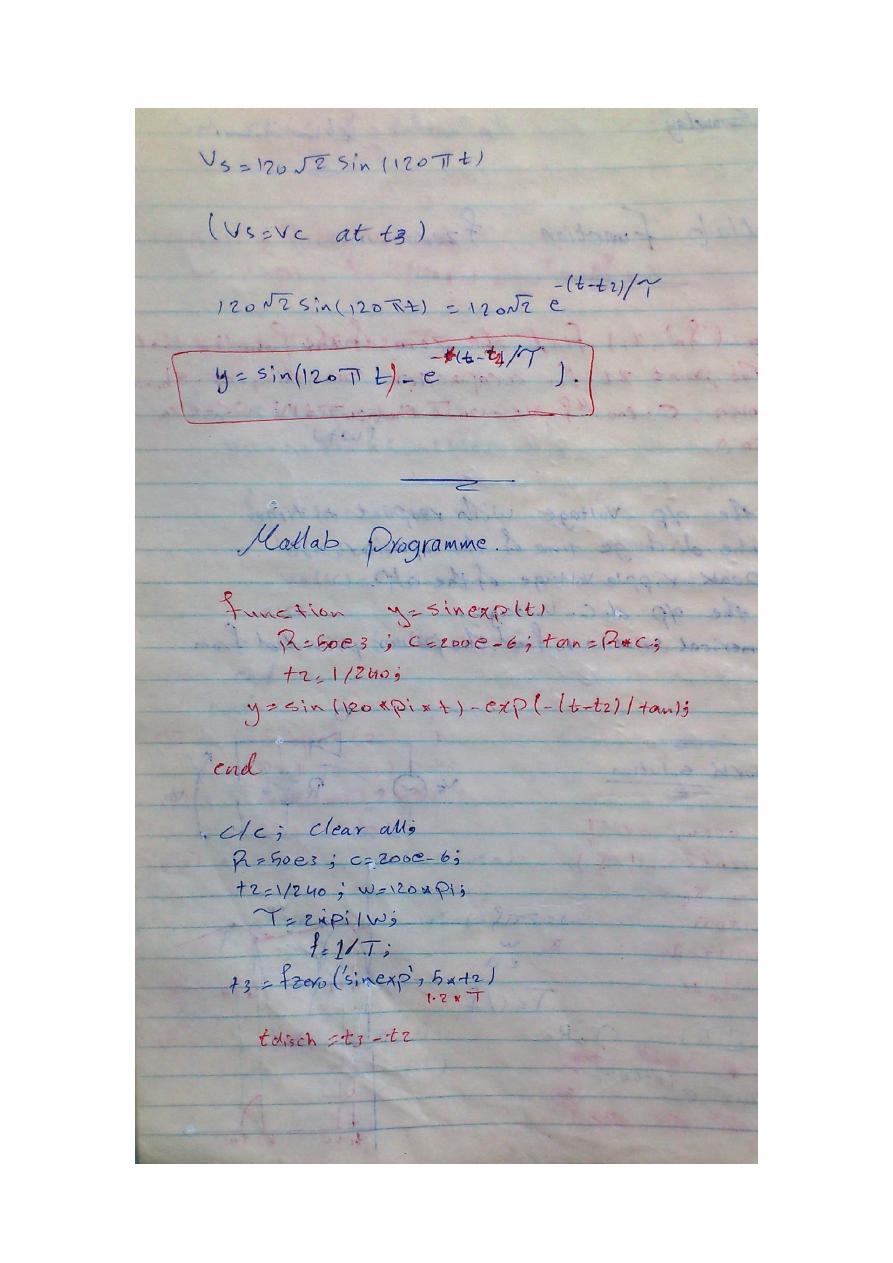 Vs = 120 √2 sin (120 π t)
(Vs = Vc at t3)
120 √2 sin (120 π t) = 120 √2 e^-(t-t2)/τ
y = sin(120 π t) - e^-(t-t2)/τ ).
Matlab Programme.
function y = sinexp(t)
R=50e3 ; C=200e-6 ; tan = R*C;
t2 = 1/240;
y = sin (120 *pi * t) - exp (-(t-t2) / tan);
end
clc ; clear all;
R = 50e3 ; C = 200e-6;
t2 = 1/240 ; w = 120*pi;
T = 2*pi/w;
f = 1/T;
t3 = fzero ('sinexp', 5*t2)
1.2 * T
tdisch = t3 - t2